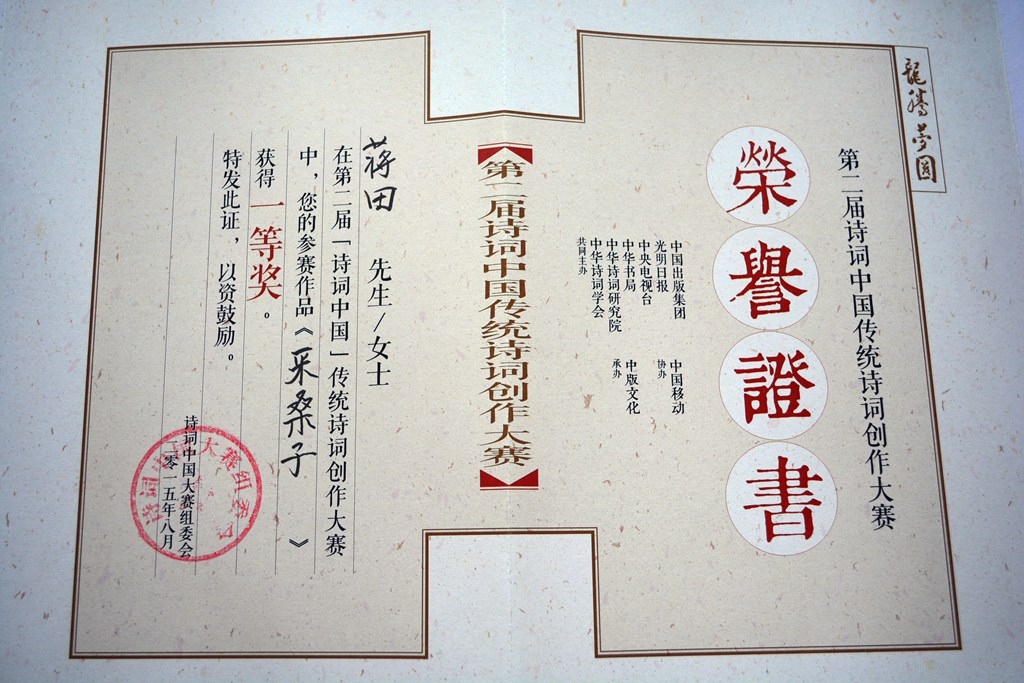 龍騰夢圓
第二届诗词中国传统诗词创作大赛
榮譽證書
中国出版集团
光明日报
中央电视台
中华书局
中华诗词研究院
中华诗词学会
共同主办
中国移动
协办
中版文化
承办
第二届诗词中国传统诗词创作大赛
蒋田 先生/女士
在第二届「诗词中国」传统诗词创作大赛
中，您的参赛作品《采桑子》
获得一等奖。
特发此证，以资鼓励。
诗词中国大赛组委会
二零一五年八月